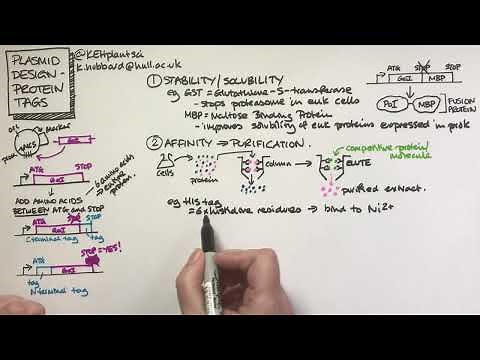 PLASMID
DESIGN -
PROTEIN
TAGS
@KEHplantsci
k.hubbard@hull.ac.uk
marker
MCS
GoI
ATG
STOP
GoI
ADD AMINO ACIDS
BETWEEN ATG and STOP
ATG
STOP
STOP
GoI
C terminal tag
tag
ATG
STOP = YES!
GoI
tag
N-terminal tag
① STABILITY/SOLUBILITY
eg GST = Glutathione-S-transferase
- stops proteasome in euk cells
MBP = Maltose Binding Protein
- improves solubility of euk proteins expressed in prok
ATG
STOP
STOP
GoI
MBP
PoI
MBP
FUSION
PROTEIN
② AFFINITY → PURIFICATION.
cells
protein
column
competitive protein/
molecule
ELUTE
purified extract.
eg His tag
= 6x histidine residues → bind to Ni2+